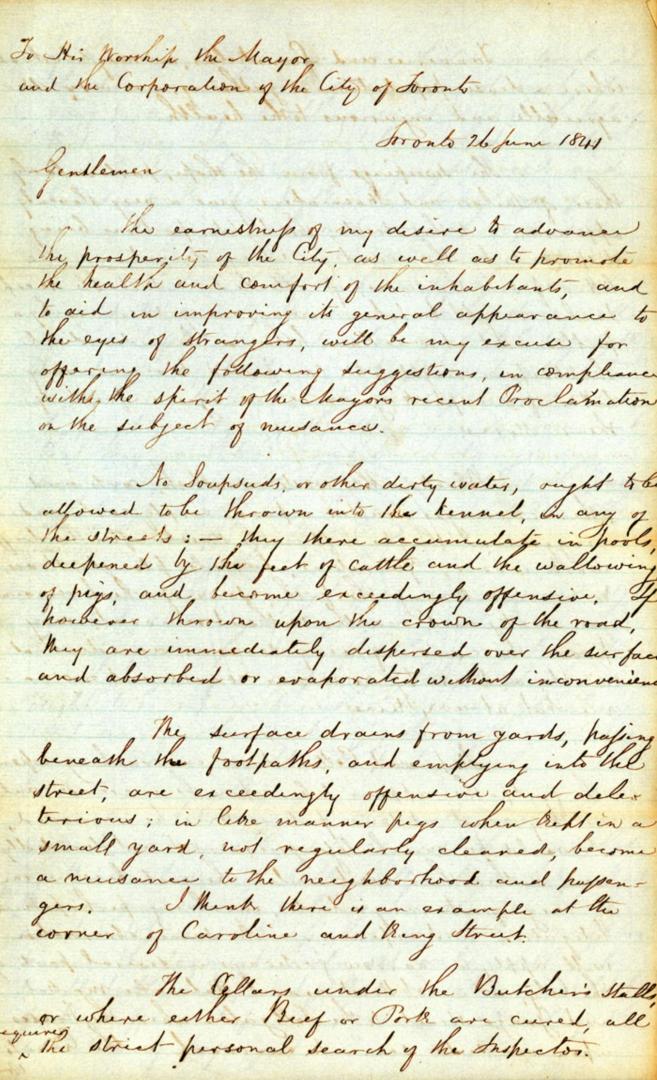 To His Worship the Mayor
and the Corporation of the City of Toronto
Toronto 26 June 1841
Gentlemen
The earnestness of my desire to advance
the prosperity of the City, as well as to promote
the health and comfort of the inhabitants, and
to aid in improving its general appearance to
the eyes of strangers, will be my excuse for
offering the following suggestions, in compliance
with the spirit of the Mayor's recent Proclamation
on the subject of nuisance.
No Soapsuds, or other dirty water, ought to be
allowed to be thrown into the kennel, in any of
the streets: — they there accumulate in pools,
deepened by the feet of cattle and the wallowing
of pigs, and become exceedingly offensive. If
however thrown upon the crown of the road,
they are immediately dispersed over the surface
and absorbed or evaporated without inconvenience
The surface drains from yards, passing
beneath the footpaths, and emptying into the
street, are exceedingly offensive and dele-
terious; in like manner pigs when kept in a
small yard, not regularly cleaned, become
a nuisance to the neighborhood and passen-
gers. I think there is an example at the
corner of Caroline and King Street.
The Cellars under the Butcher's Stalls,
or where either Beef or Pork are cured, all
require the strict personal search of the Inspector.